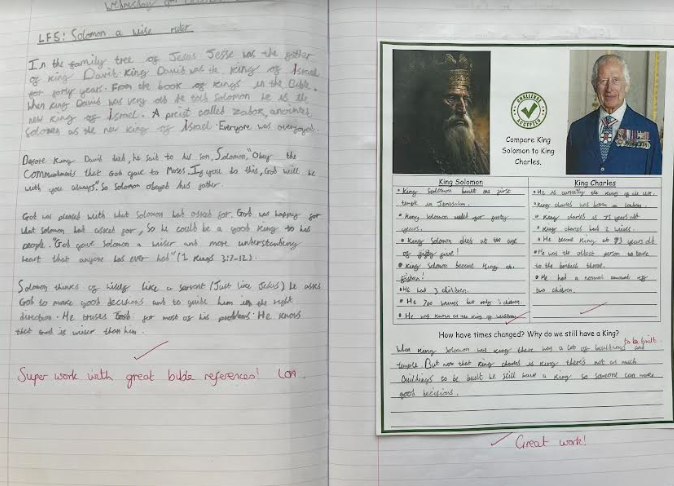 Wednesday
LF5: Solomon a wise ruler
In the family tree of Jesus Jesse was the father
of King David. King David was the King of Israel
for forty years. From the book of Kings in the Bible.
When King David was very old he told Solomon he is the
new King of Israel. A priest called Zadok anointed
Solomon as the new King of Israel. Everyone was overjoyed.
Before King David died, he said to his son, Solomon, "Obey the
Commandments that God gave to Moses. If you do this, God will be
with you always". So Solomon obeyed his father.
God was pleased with what Solomon had asked for. God was happy for
what Solomon had asked for, So he could be a good King to his
people. "God gave Solomon a wiser and more understanding
heart that anyone has ever had" (1 Kings 3:7-12).
Solomon thinks of himself like a servant (Just like Jesus) he asks
God to make good decisions and to guide him in the right
direction. He trusts God for most of his problems. He knows
that God is wiser than him.
Super work with great bible references!
CHALLENGE
ACCEPTED
Compare King
Solomon to King
Charles.
King Solomon
King Solomon built the first
temple in Jerusalem.
King Solomon ruled for forty
years.
King Solomon died at the age
of
King Solomon became King at
He had 3 children.
He 700
He was known as the King of wisdom
King Charles
He is currently the King of the UK.
King Charles was born in London.
King Charles is 75 years old
King Charles had 2 wives.
He became King at 73 years old
He was the oldest person to
to the British throne.
He had a normal amount of
two children.
How have times changed? Why do we still have a King?
to be built
When King Solomon was King there was a lot of buildings and
temple. But now that King Charles is King there's not as much
buildings to be built. We still have a King so someone can make
good decisions.
Great work!